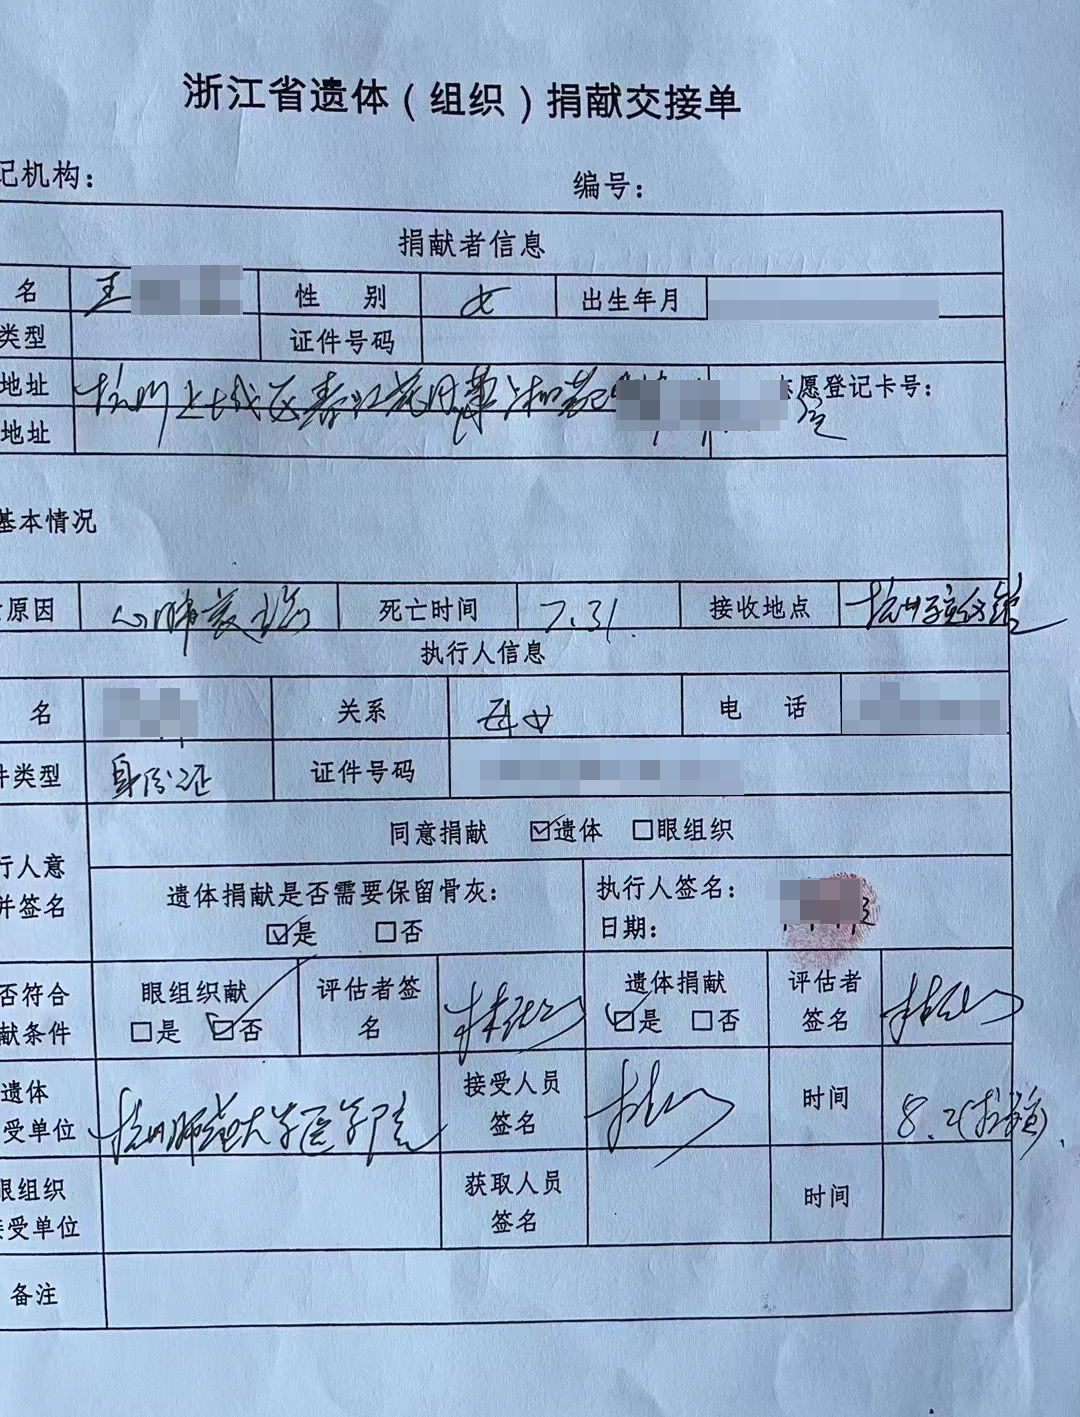 浙江省遗体（组织）捐献交接单
记机构：
编号：
捐献者信息
名 王 性 别 女 出生年月
类型 证件号码
地址 杭州上城区春江花月 志愿登记卡号：
地址 室
基本情况
原因 心肺衰竭 死亡时间 7.31. 接收地点 杭州殡仪馆
执行人信息
名 关系 母女 电 话
件类型 身份证 证件号码
同意捐献 ☑遗体 □眼组织
行人意
并签名
遗体捐献是否需要保留骨灰：
☑是 □否
执行人签名：
日期：
否符合
献条件
眼组织献
□是 ☑否
评估者签
名
遗体捐献
☑是 □否
评估者
签名
遗体
受单位
杭州师范大学医学院
接受人员
签名
时间
8.2
眼组织
受单位
获取人员
签名
时间
备注